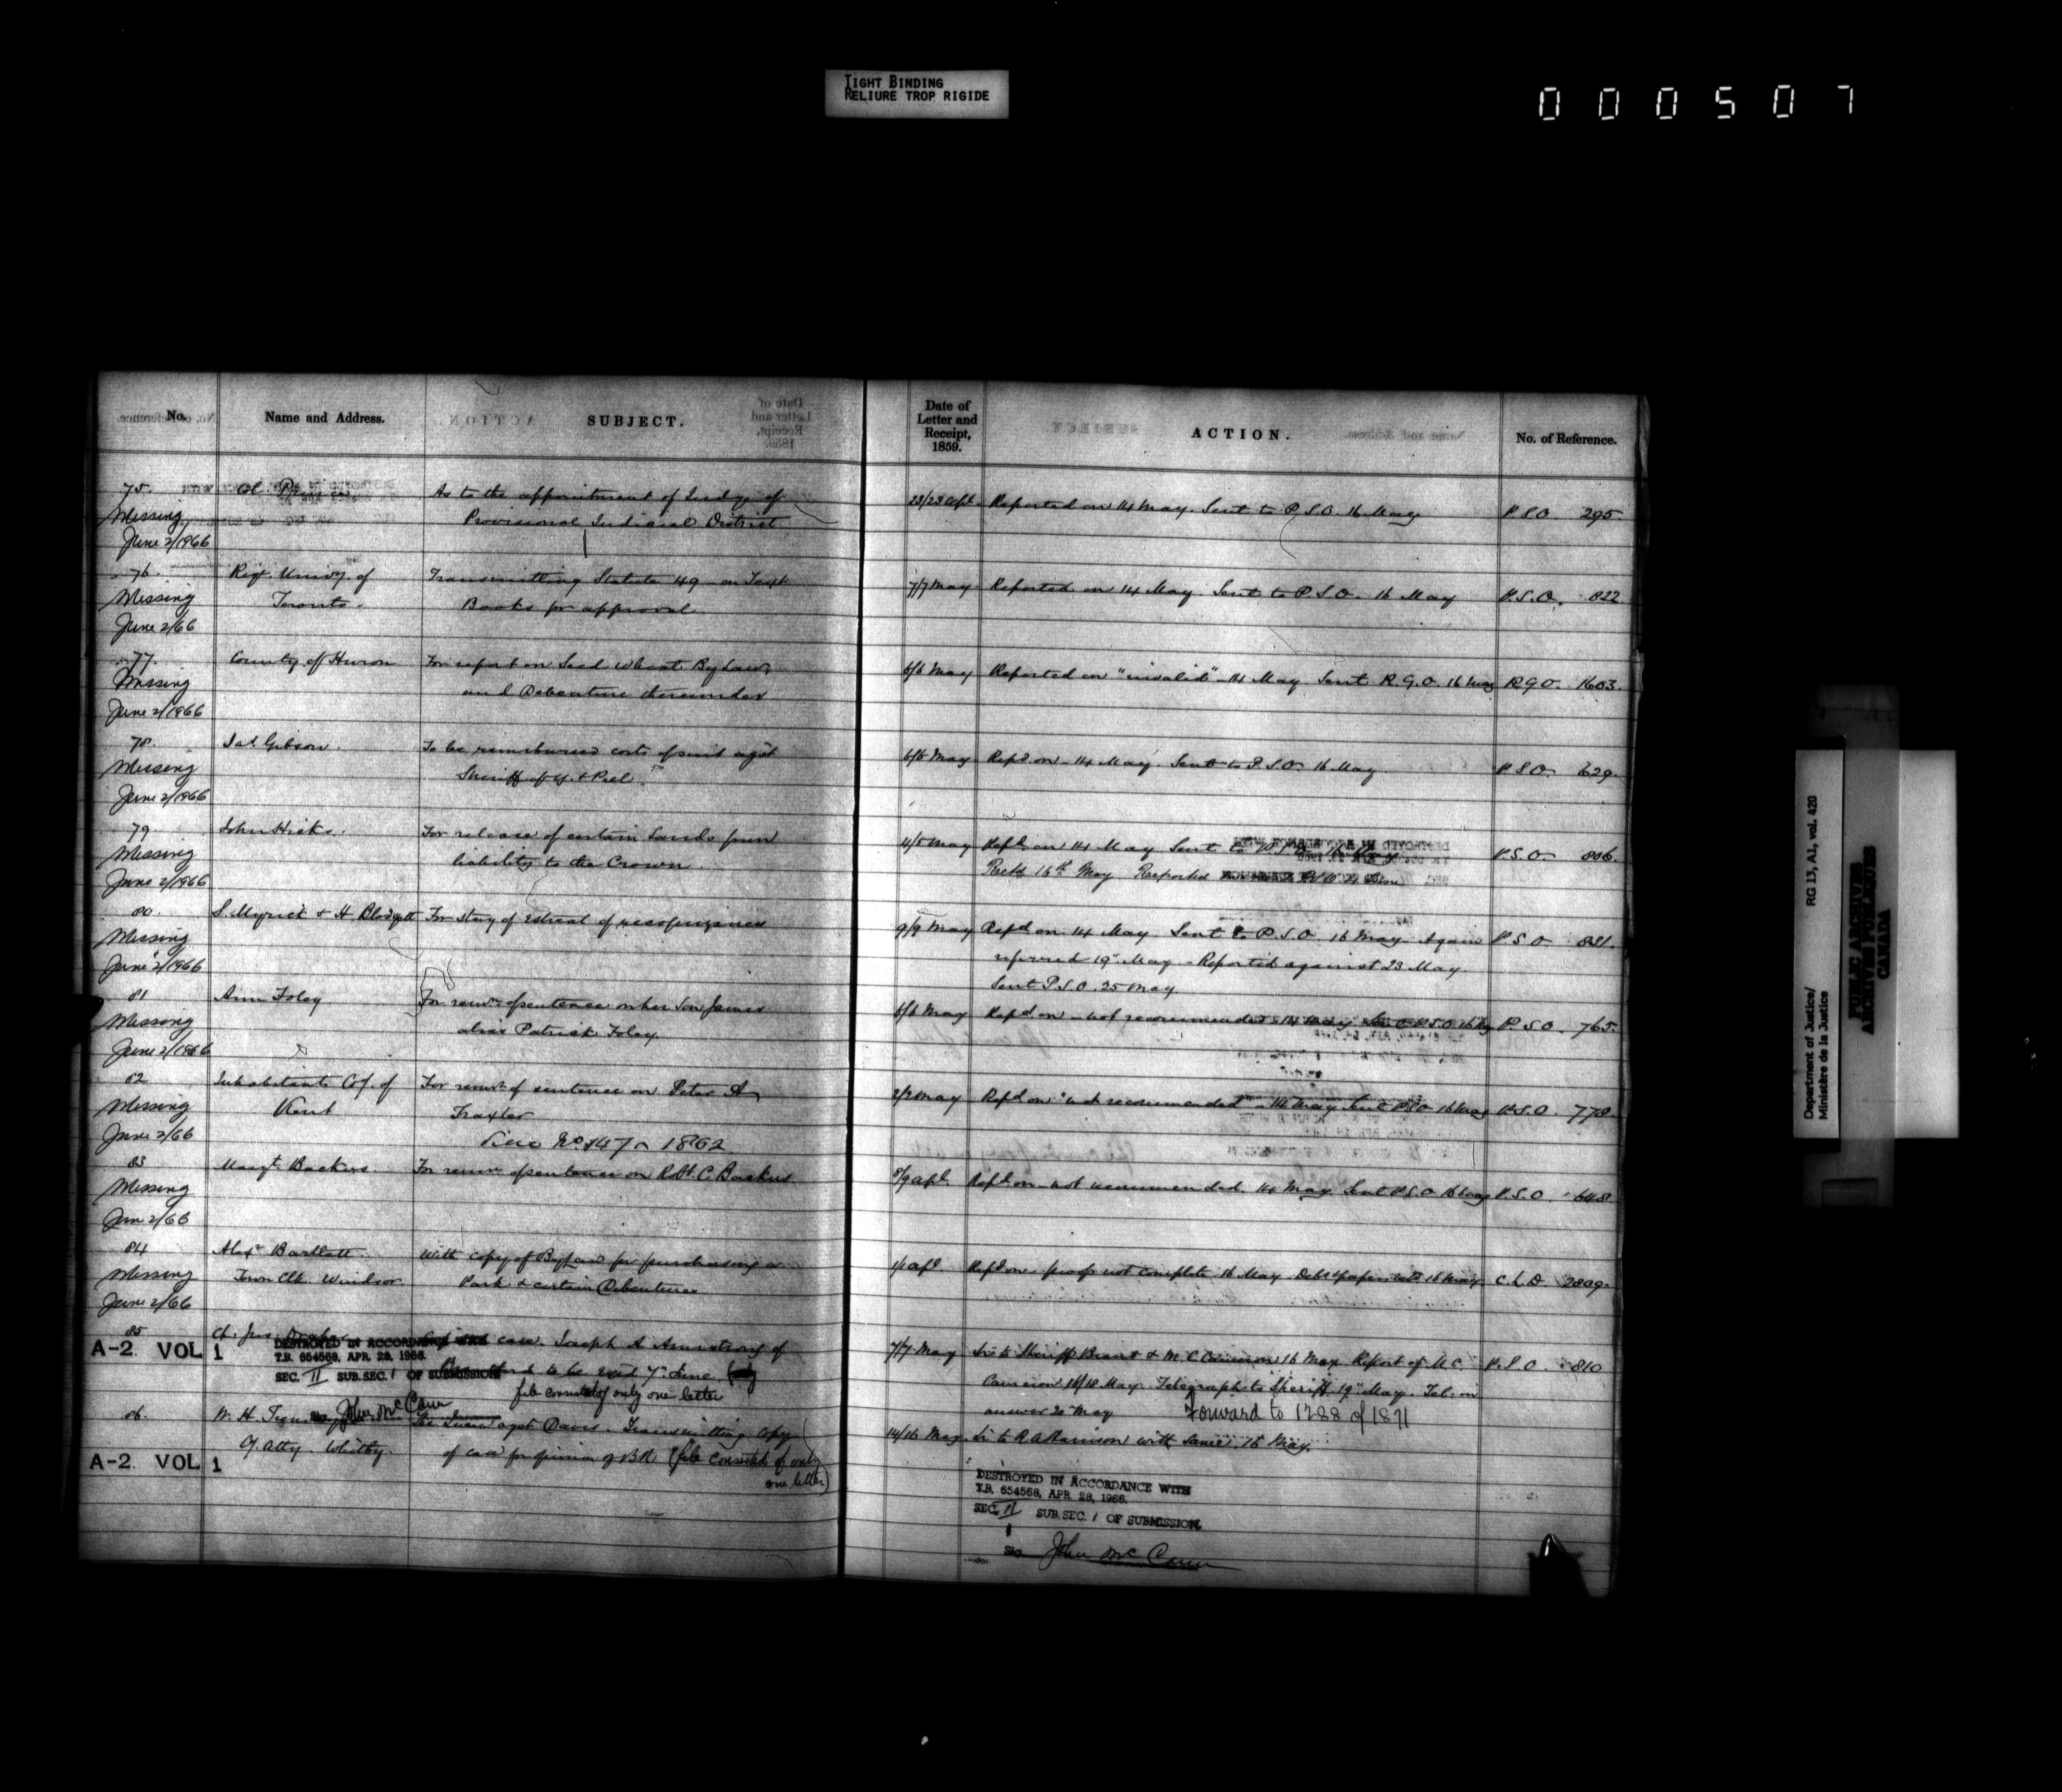 TIGHT BINDING
RELIURE TROP RIGIDE
000507
No.
Name and Address.
SUBJECT.
Date of
Letter and
Receipt,
1859.
ACTION.
No. of Reference.
75.
Col. Prince
As to the appointment of Judge of
23/23 Apl.
Reported on 14 May. Sent to P.S.O. 16 May
P.S.O. 295.
Missing
Provisional Judicial District
June 2/1966
76.
Regr. Univy. of
Transmitting Statute 49 on Text
7/7 May
Reported on 14 May. Sent to P.S.O. 16 May
P.S.O. 822
Missing
Toronto.
Books for approval.
June 2/66
77.
County of Huron
For report on Seed Wheat By Law,
6/6 May
Reported on "invalid" 14 May. Sent R.G.O. 16 May
R.G.O. 1603.
Missing
and Debenture thereunder
June 2/1966
78.
Jas. Gibson.
To be reimbursed costs of suit agst
6/6 May
Repd. on 14 May. Sent to P.S.O. 16 May
P.S.O. 629.
Missing
Sheriff of Y. & Peel.
June 2/1966
79.
John Hicks.
For release of certain Lands from
4/5 May
Repd. on 14 May Sent to P.S.O.
P.S.O. 806.
Missing
liability to the Crown.
16th May Reported
June 2/1966
80.
S. Myrick & H. Blodgett
For stay of estreat of recognizances
9/9 May
Repd. on 14 May Sent to P.S.O. 16 May. Again
P.S.O. 831.
Missing
referred 19" May - Reported against 23 May
June 2/1966
Sent P.S.O. 25 May
81
Ann Foley
For remn. of sentence on her Son James
6/6 May
Repd. on - not recommended - 14 May. Sent P.S.O. 16 May
P.S.O. 765.
Missing
alias Patrick Foley.
June 2/1966
82
Inhabitants Coy. of
For remn. of sentence on Peter A
2/2 May
Repd. on "not recommended" - 14 May Sent P.S.O. 16 May
P.S.O. 778.
Missing
Kent
Traxler
June 2/66
1862
83
Margt. Backus.
For remn. of sentence on Robt. C. Backus
8/9 Apl.
Repd. on - not recommended. 14 May Sent P.S.O. 16 May
P.S.O. 648
Missing
Jun 2/66
84
Alexr. Bartlett.
With copy of By Law for purchasing a
Repd. on. proof not complete. 16 May.
C.L.D. 2809.
Missing
Town Clk. Windsor
Park & certain Debentures
June 2/66
85
Ch. Jus. Draper
case. Joseph A Armstrong of
7/7 May
Lr. to Sheriff Brant & M. C. Cameron 16 May. Report of M.C.
P.S.O. 810
A-2. VOL 1
DESTROYED IN ACCORDANCE WITH
T.B. 654568, APR. 28, 1966.
SEC. II SUB.SEC. 1 OF SUBMISSION
to be 7" June
Cameron 18/18 May. Telegraph to Sheriff 19" May. Tel. in
file consisted of only one letter
answer 20 May
Forward to 1288 of 1871
SIG. John McCann
86.
The Queen agst Davis. Transmitting Copy
14/16 May.
Lr. to R A Harrison with same. 16 May.
Cy. Atty. Whitby.
of case for opinion of
(file consisted of only
one letter)
A-2. VOL 1
DESTROYED IN ACCORDANCE WITH
T.B. 654568, APR. 28, 1966.
SEC. II SUB.SEC. 1 OF SUBMISSION
SIG. John McCann
Department of Justice/
Ministère de la Justice
RG 13, A1, vol. 420
PUBLIC ARCHIVES
ARCHIVES PUBLIQUES
CANADA